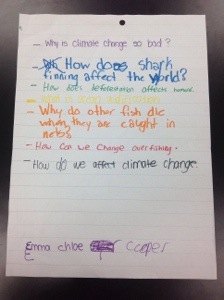 - Why is climate change so bad?
- How does shark
finning affect the world?
- How does deforestation affects humans.
- What is ocean
- Why do other fish die
when they are caught in
nets
- How can we change overfishing.
- How do we affect climate change.
Emma chloe Cooper